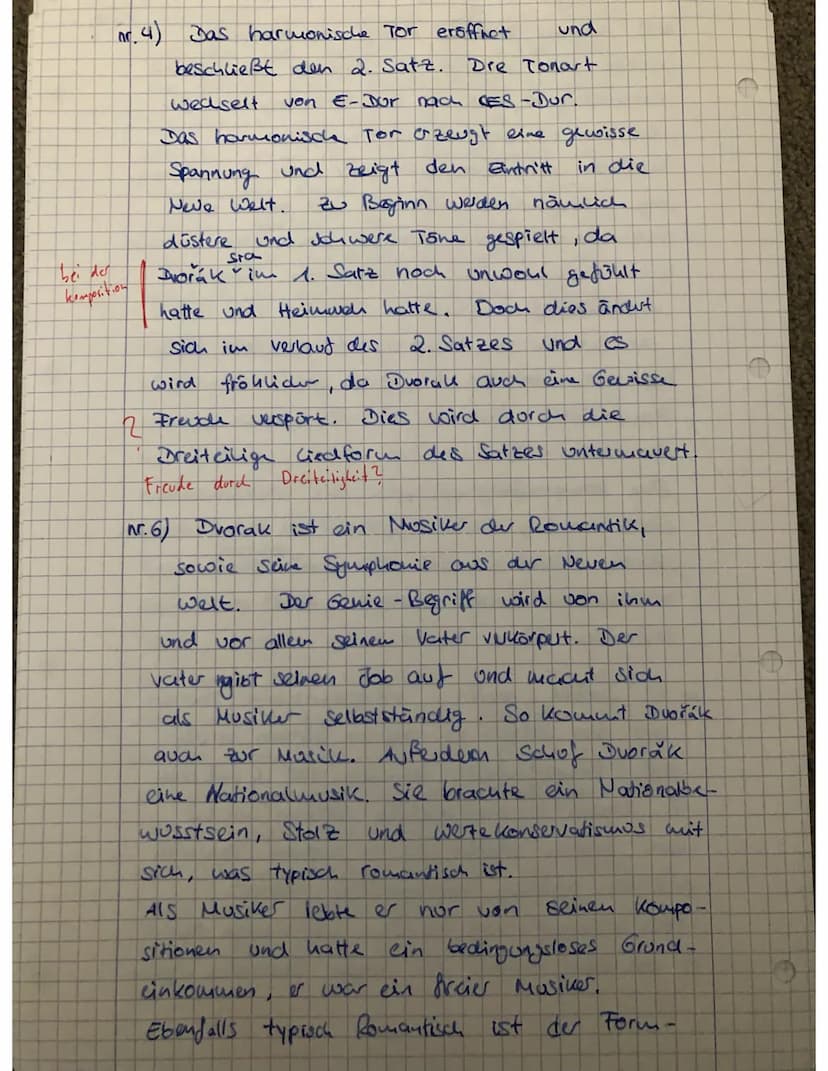 nr. 4) Das harmonische Tor eröffnet und
beschließt den 2. Satz. Die Tonart
wechselt von E-Dur nach DES-Dur.
Das harmonische Tor erzeugt eine gewisse
Spannung und zeigt den Eintritt in die
Neue Welt. Zu Beginn werden nämlich
düstere und schwere Töne gespielt, da
sich
bei der
Dvořák im 1. Satz noch unwohl gefühlt
komposition
hatte und Heimweh hatte. Doch dies ändert
sich im verlauf des 2. Satzes und es
wird fröhlicher, da Dvorak auch eine Gewisse
? Freude verspürt. Dies wird durch die
Dreiteilige Liedform des Satzes untermauert.
Freude durch Dreiteiligkeit?
Nr. 6) Dvorak ist ein Musiker der Romantik,
sowie seine Symphonie aus der Neuen
Welt. Der Genie-Begriff wird von ihm
und vor allem seinem Vater verkörpert. Der
Vater gibt seinen Job auf und macht sich
als Musiker selbstständig. So kommt Dvořák
auch zur Musik. Außerdem schuf Dvořák
eine Nationalmusik. Sie brachte ein Nationalbe-
wusstsein, Stolz und Wertekonservatismus mit
sich, was typisch romantisch ist.
Als Musiker lebte er nur von seinen Kompo-
sitionen und hatte ein bedingungsloses Grund-
einkommen, er war ein freier Musiker.
Ebenfalls typisch Romantisch ist der Form-